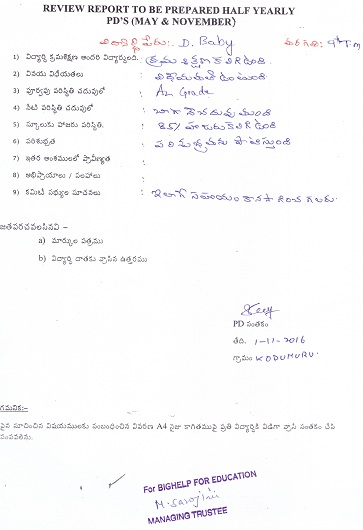 REVIEW REPORT TO BE PREPARED HALF YEARLY
PD'S (MAY & NOVEMBER)
విద్యార్థి పేరు:- D. Baby తరగతి: 9th T.m
1) విద్యార్థి క్రమశిక్షణ అందరి విద్యార్థులందు : క్రమశిక్షణ కలిగింది
2) వినయ విధేయతలు : విధేయతతో ఉంటుంది
3) పూర్వపు పరిస్థితి చదువులో : A2 Grade
4) నేటి పరిస్థితి చదువులో : బాగా చదువుతుంది
5) స్కూలుకు హాజరు పరిస్థితి. : 85% హాజరు కలిగింది
6) పరిశుభ్రత :
7) ఇతర అంశములలో ప్రావీణ్యత :
8) అభిప్రాయాలు / సలహాలు :
9) కమిటీ సభ్యుల సూచనలు : ఇలాగే సహాయం
జతపరచవలసినవి –
a) మార్కుల పత్రము
b) విద్యార్థి దాతకు వ్రాసిన ఉత్తరము
PD సంతకం
తేది. 1-11-2016
గ్రామం KODUMURU.
గమనిక:-
పైన సూచించిన విషయములకు సంబంధించిన వివరణ A4 సైజు కాగితముపై ప్రతి విద్యార్థికి విడిగా వ్రాసి సంతకం చేసి
పంపవలెను.
For BIGHELP FOR EDUCATION
M. Sarojini
MANAGING TRUSTEE